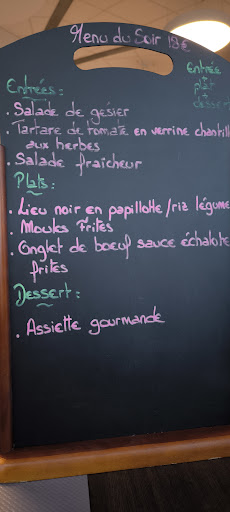 Menu du Soir 19€
Entrée
plat
dessert
Entrées :
. Salade de gesier
. Tartare de tomate en verrine chantill
aux herbes
. Salade fraîcheur
Plats :
. Lieu noir en papillotte / riz légume
. Moules Frites
. Onglet de boeuf sauce échalote
frites
Dessert :
. Assiette gourmande